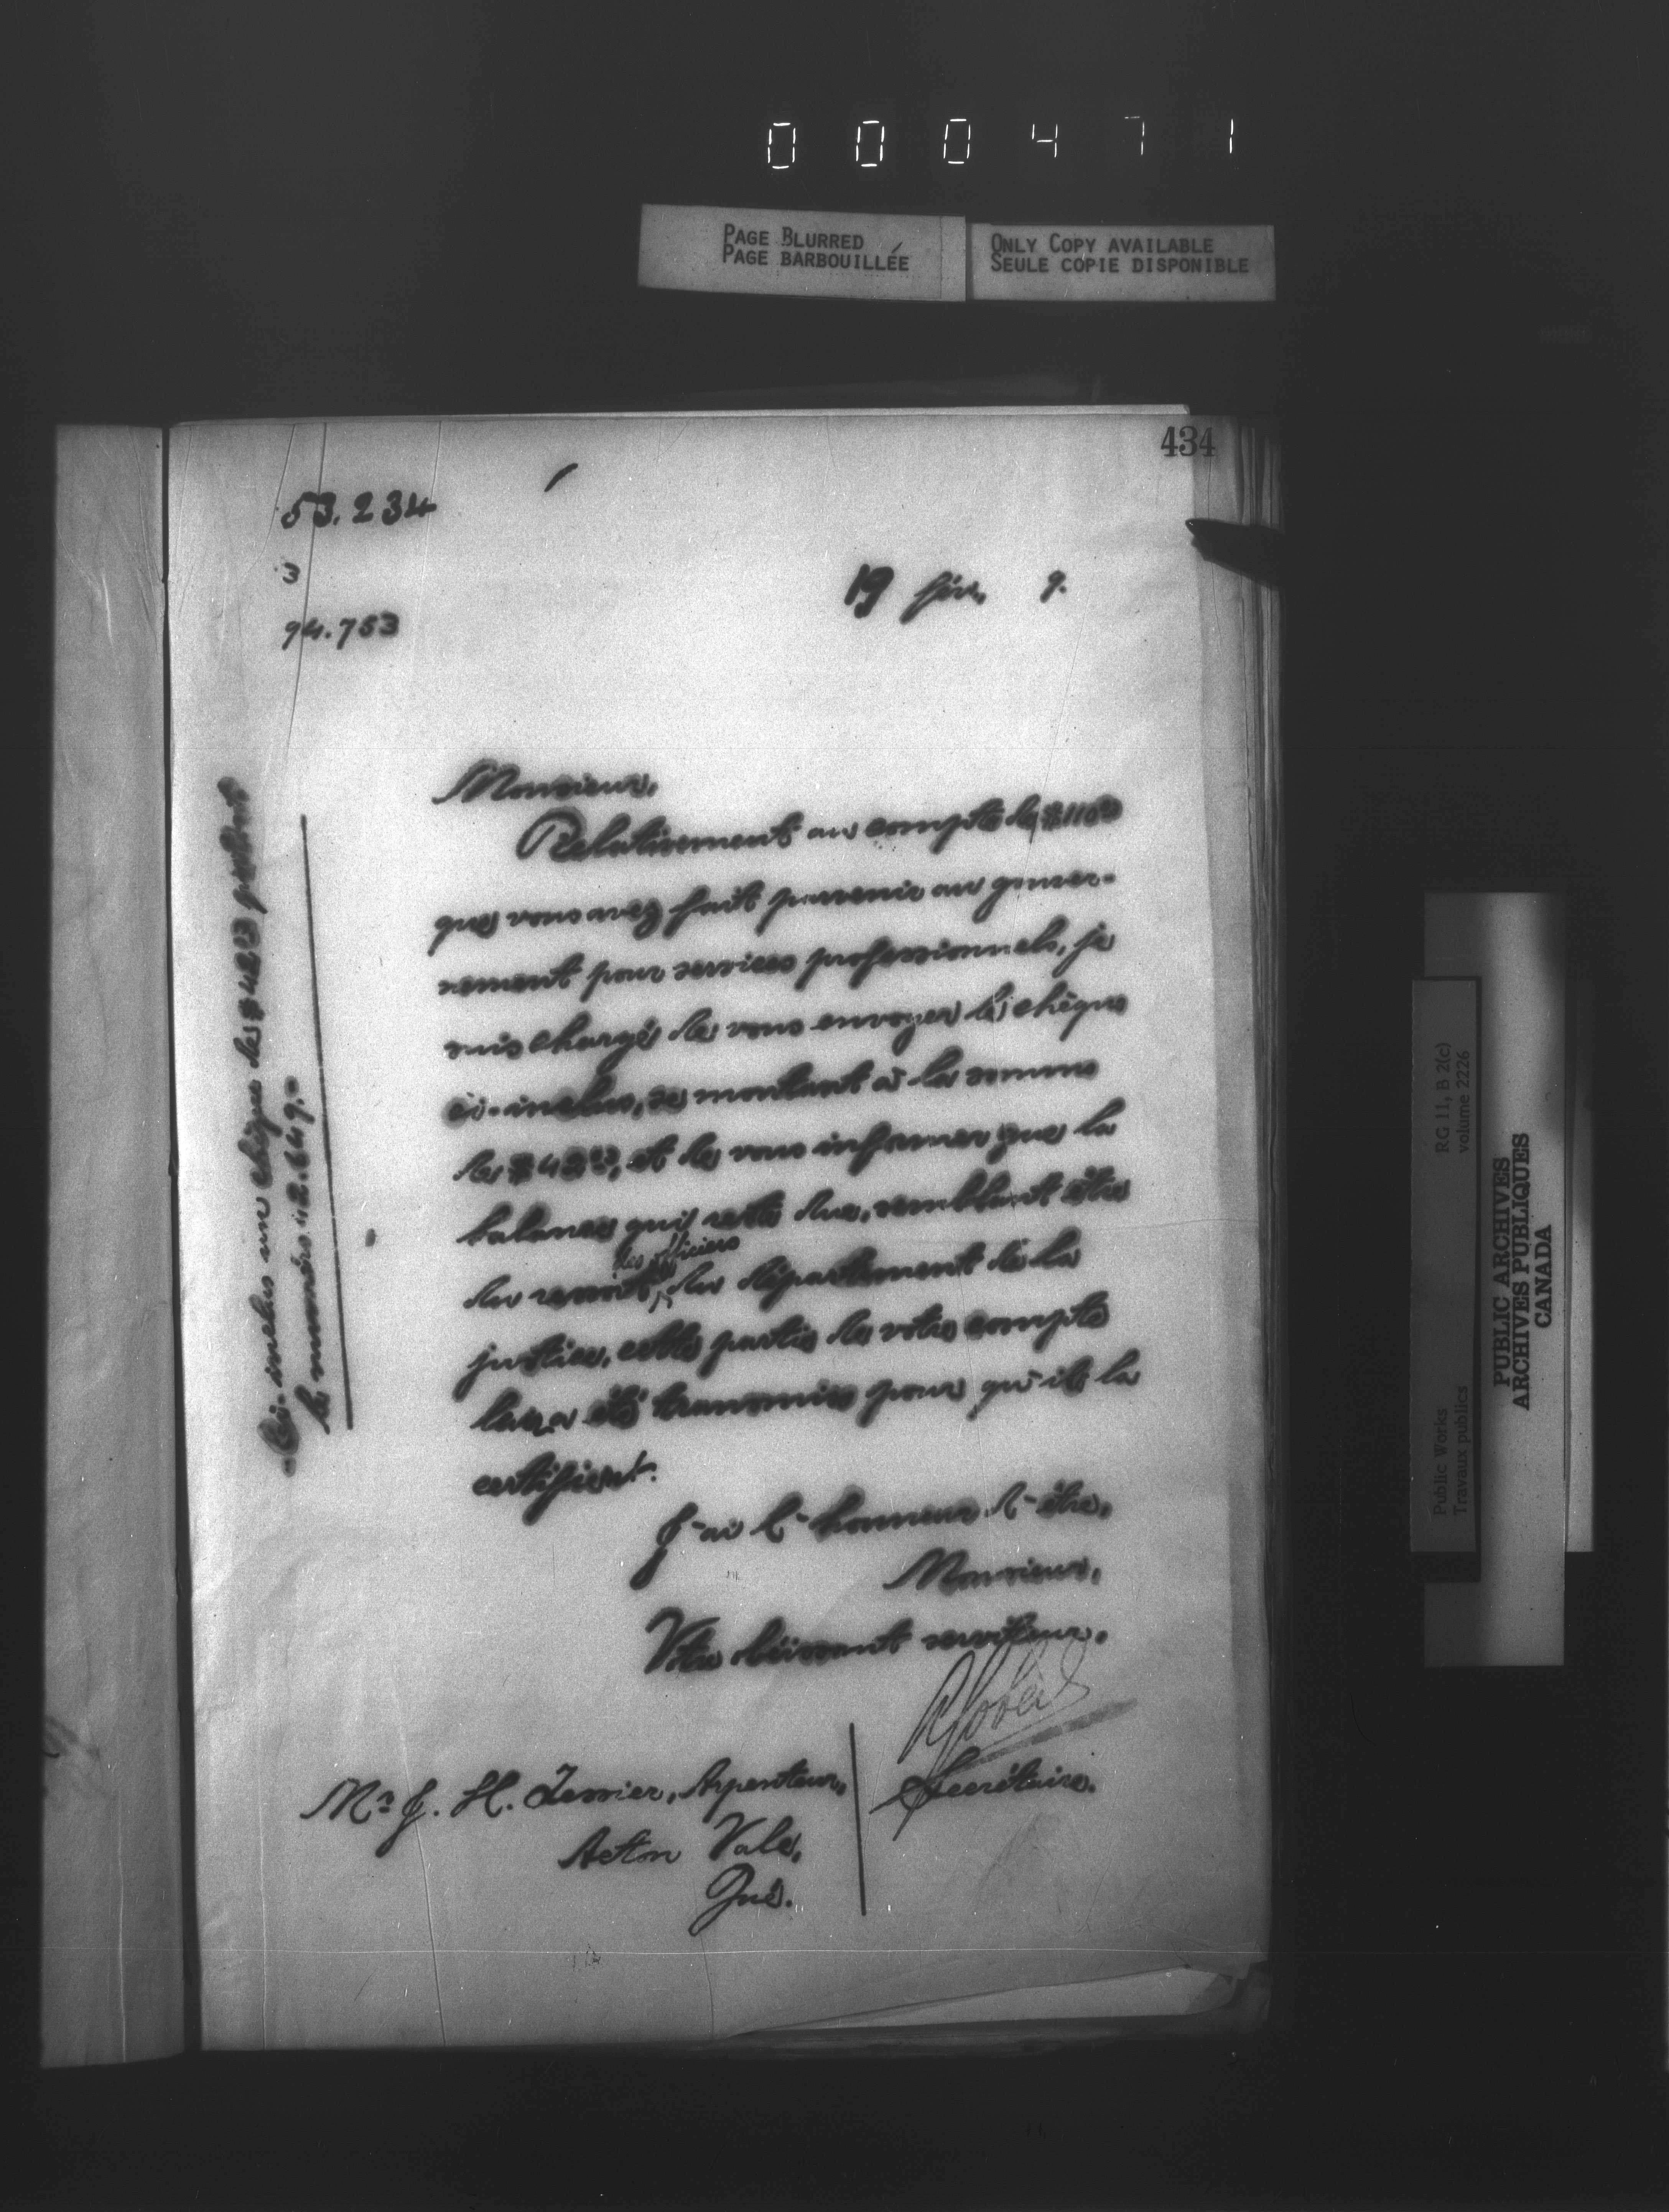 000471
PAGE BLURRED
PAGE BARBOUILLÉE
ONLY COPY AVAILABLE
SEULE COPIE DISPONIBLE
434
53.234
3
94.753
19 fév. 9.
Monsieur,
Relativement au compte de $110
que vous avez fait parvenir au gouver-
nement pour services professionnels, je
suis chargé de vous envoyer le chèque
ci-inclus, se montant à la somme
de $42, et de vous informer que la
balance qui reste due, semblant être
les officiers
du ressort, du département de la
justice, cette partie de votre compte
leur a été transmise pour qu'ils la
certifient.
J'ai l'honneur d'être,
Monsieur,
Votre obéissant serviteur,
Gobeil
Secrétaire.
Mr J. H. Tessier, Arpenteur,
Acton Vale,
Qué.
Ci-inclus un chèque de $42 portant
le numéro 2.649.
RG 11, B 2(c)
volume 2226
Public Works
Travaux publics
PUBLIC ARCHIVES
ARCHIVES PUBLIQUES
CANADA